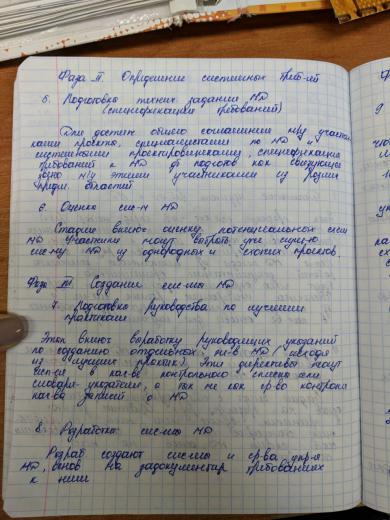 Фаза II. Определение системных треб-ий
5. Подготовка технич задания МД
(спецификации требований)
Для достиж общего соглашения м/у участни
ками проекта, специалистами по МД и
системными проектировщиками, спецификация
требований к МД подготов как связующее
звено м/у этими участниками из разных
предм. областей
6. Оценка сис-м МД
Стадия включ оценку потенциальных сист
МД. Участники могут выбрать уже сущ-ю
сис-му МД из однородных и схожих проектов.
Фаза III Создания сис-мы МД
7. Подготовка руководства по лучшим
практикам.
Этап включ выработку руководящих указаний
по созданию отдельных МД исходя
из лучших практик. Эти директивы могут
исп-ся в кач-ве контрольного списка или
словаря-указателя, а так же как ср-во контроля
кач-ва записей о МД
8. Разработка сис-мы МД
Разраб создают сис-мы и ср-ва упр-я
МД, основ на задокументир требованиях
к ним